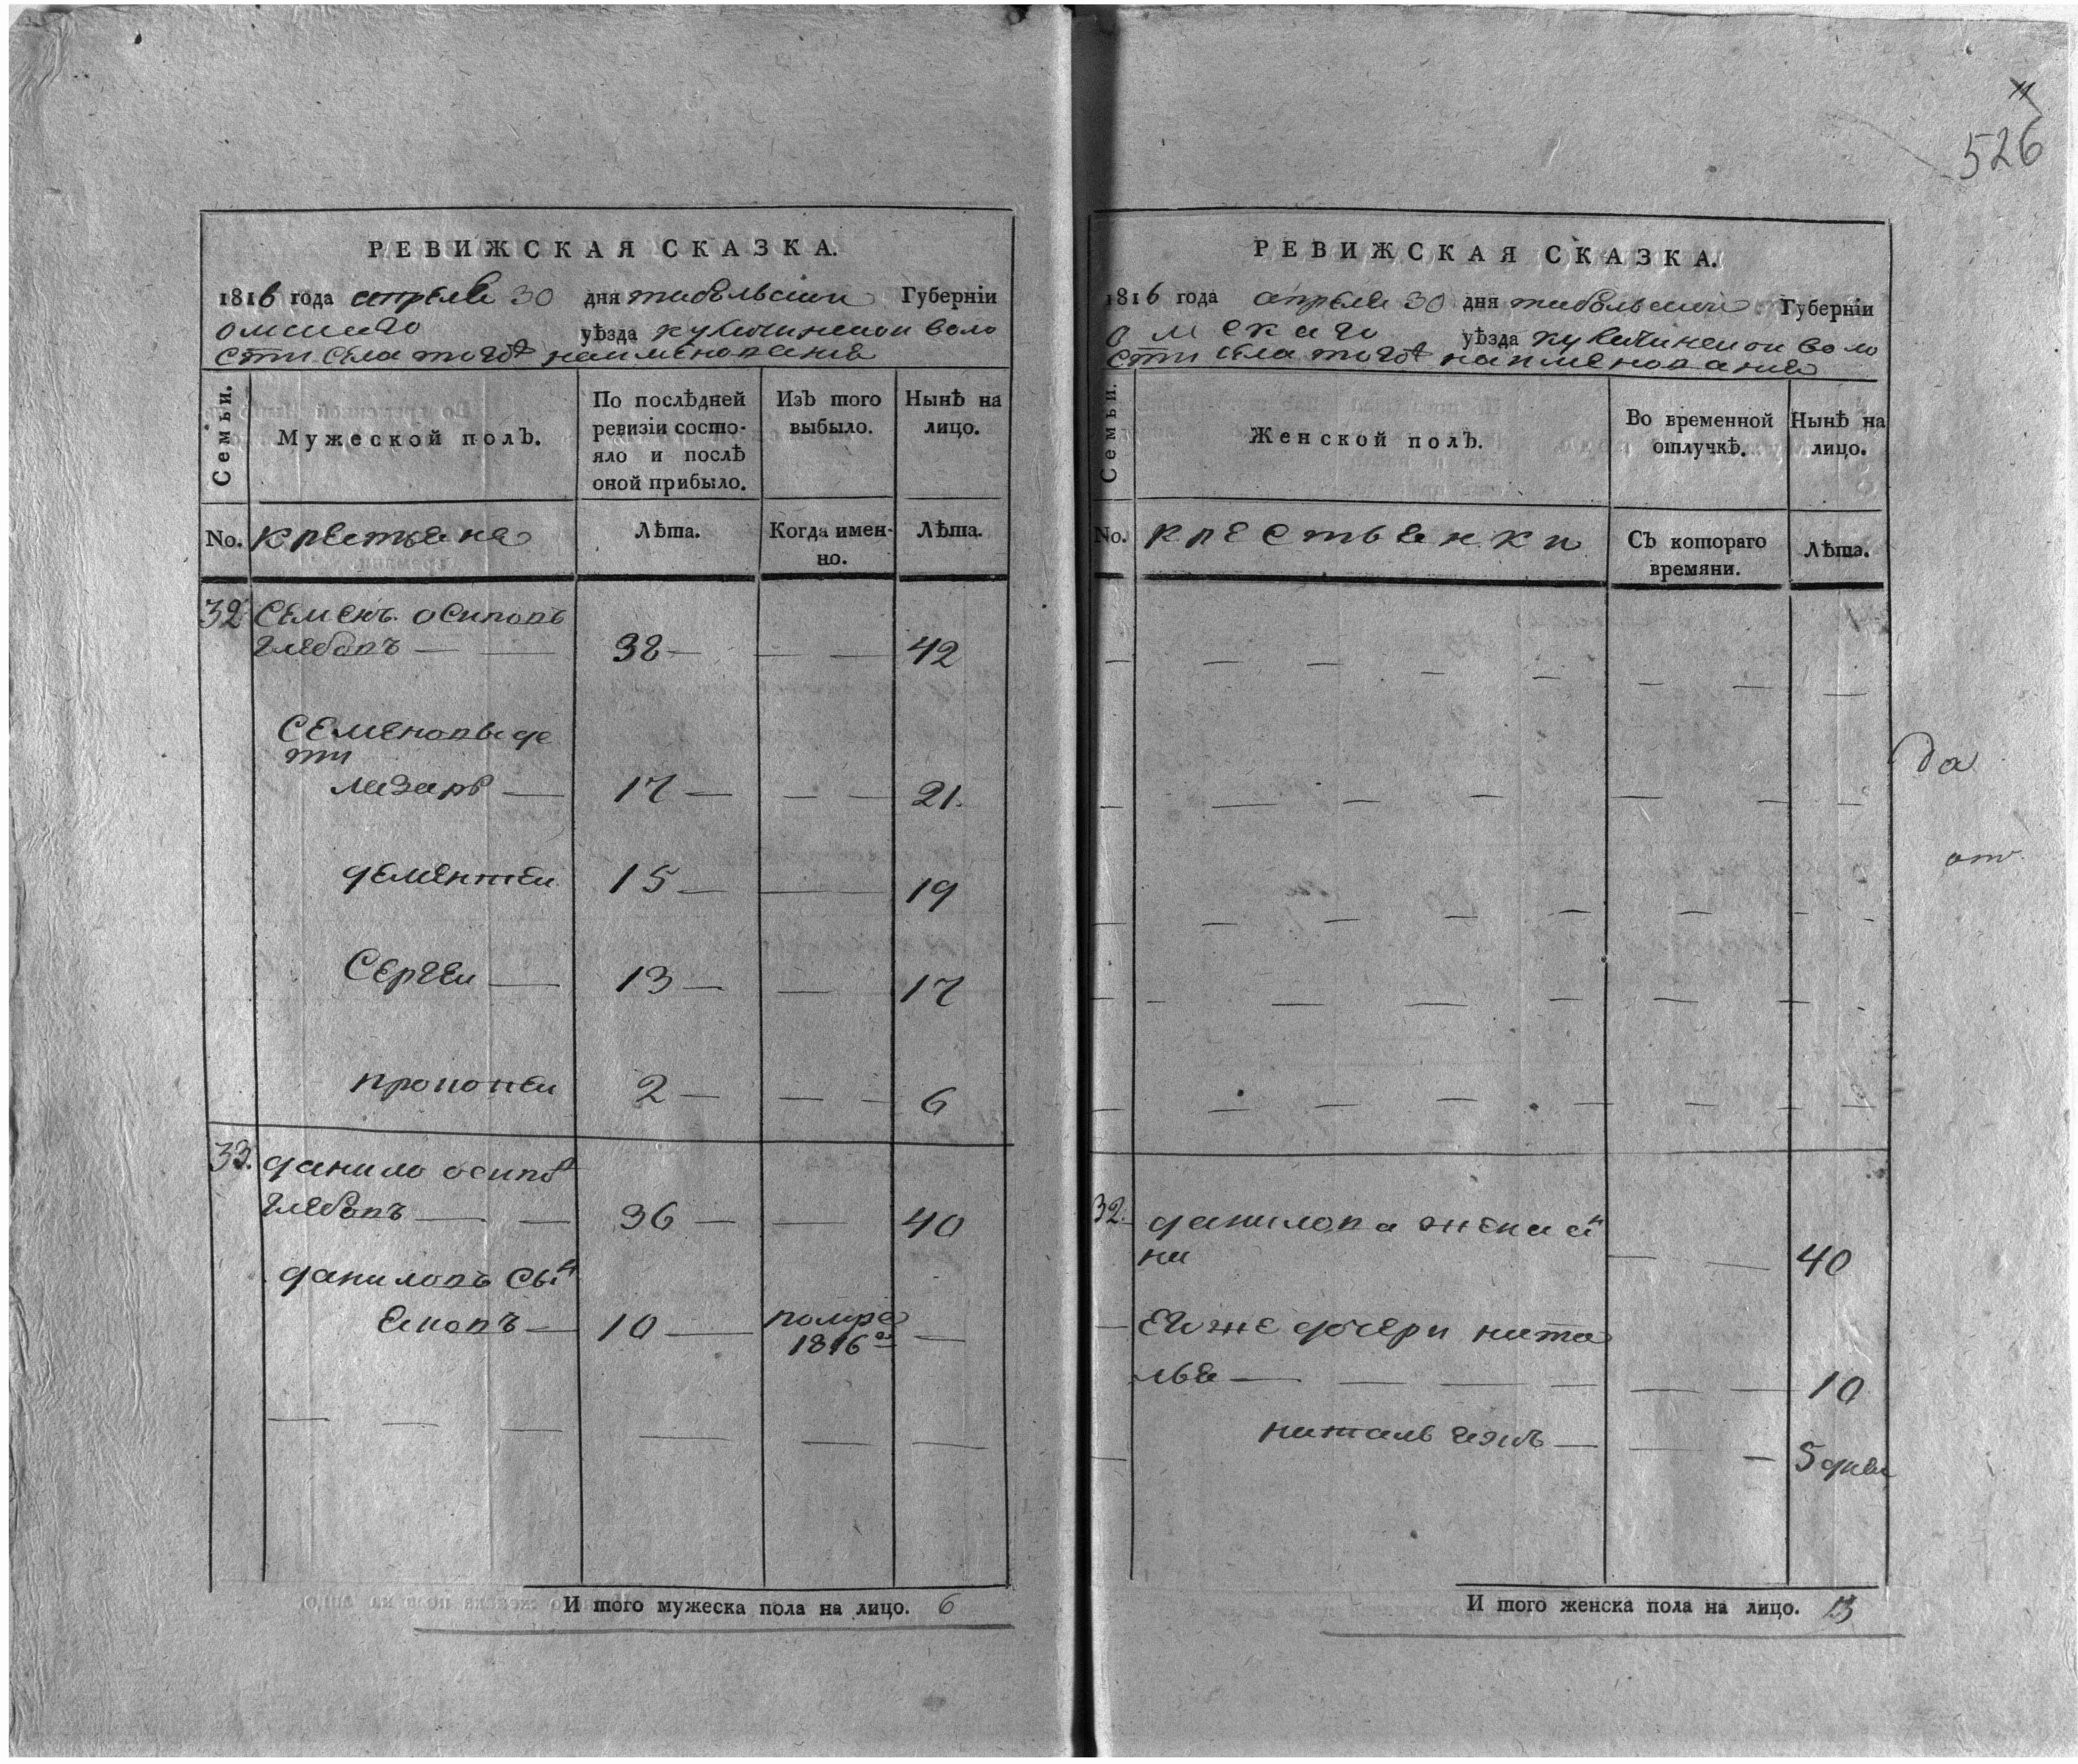 РЕВИЖСКАЯ СКАЗКА.
1816 года апреля 30 дня тобольскои Губерніи
омскаго уѣзда кулачинскои воло
сти села тогож наименования
Семьи.
Мужеской полъ.
По послѣдней ревизіи состояло и послѣ оной прибыло.
Изъ того выбыло.
Нынѣ на лицо.
No.
крестьяня
Лѣта.
Когда именно.
Лѣта.
32 Семенъ осиповъ
глябовъ — — 38 — — — 42
Семеновы де
ти
лазарь — 17 — — — 21.
дементеи 15 — — 19
Сергеи — 13 — — 17
прокопеи 2 — — — 6
33. данило осипов
глябовъ — — 36 — — 40
даниловъ сын
Еяковъ — 10 — помре —
1816
И того мужеска пола на лицо. 6
11
526
РЕВИЖСКАЯ СКАЗКА.
1816 года апреля 30 дня тобольскои Губерніи
омскаго уѣзда кулачинскои воло
сти села тогож наименования
Семьи.
Женской полъ.
Во временной отлучкѣ.
Нынѣ на лицо.
No.
крестьянки
Съ котораго времяни.
Лѣта.
да
от
32. данилова жена ан
на — — 40
— Еиже дочери ната
лья — — — — — — 10
— — — 5 днеи
И того женска пола на лицо. 3